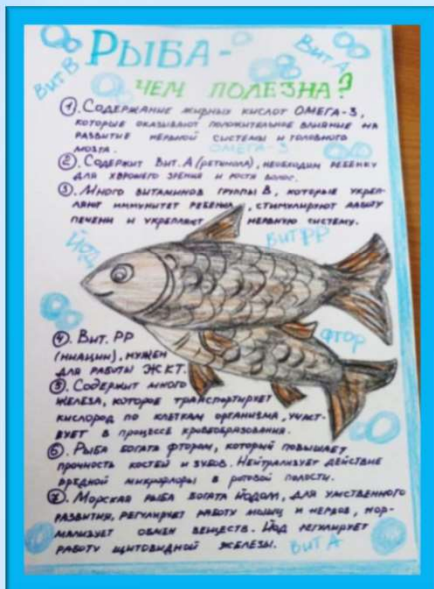 Рыба -
Вит В
Вит А
чем полезна?
①. Содержание жирных кислот ОМЕГА-3,
которые оказывают положительное влияние на
развитие нервной системы и головного
мозга.
ОМЕГА-3
②. Содержит Вит. А (ретинола), необходим ребенку
для хорошего зрения и роста волос.
③. Много витаминов группы В, которые укреп-
ляют иммунитет ребенка, стимулируют работу
печени и укрепляют нервную систему.
Йод
Вит РР
Фтор
④. Вит. РР
(ниацин), нужен
для работы ЖКТ.
⑤. Содержит много
железа, которое транспортирует
кислород по клеткам организма, участ-
вует в процессе кровообразования.
⑥. Рыба богата фтором, который повышает
прочность костей и зубов. Нейтрализует действие
вредной микрофлоры в ротовой полости.
⑦. Морская рыба богата йодом, для умственного
развития, регулирует работу мышц и нервов, нор-
мализует обмен веществ. Йод регулирует
работу щитовидной железы.
Вит А